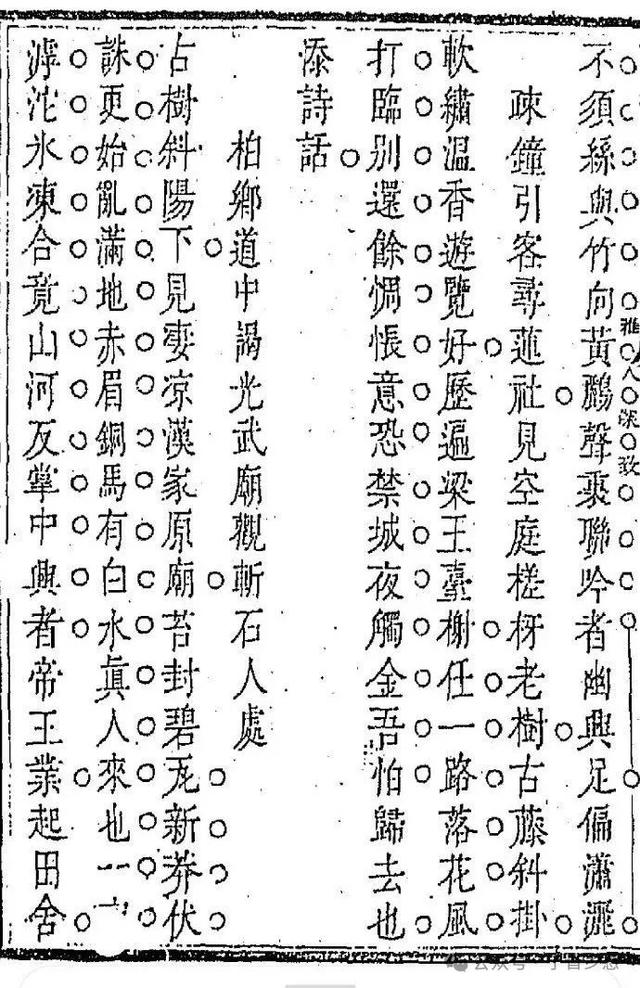 不須絲與竹向黃鸝聲裏聯吟者幽興足偏瀟灑
雅人深致
疎鐘引客尋蓮社見空庭槎枒老樹古藤斜掛
軟繡溫香遊覽好歷遍梁王臺榭任一路落花風
打臨別還餘惆悵意恐禁城夜觸金吾怕歸去也
添詩話
柏鄉道中謁光武廟觀斬石人處
古樹斜陽下見淒涼漢家原廟苔封碧瓦新莽伏
誅更始亂滿地赤眉銅馬有白水眞人來也一
滹沱氷凍合竟山河反掌中興者帝王業起田舍
公众号